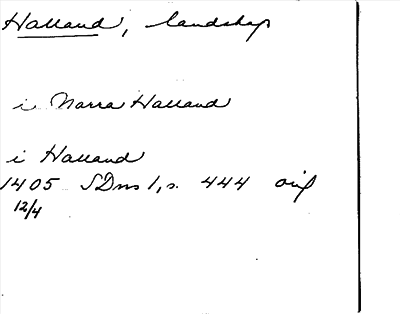 Halland, landskap
i Norra Halland
i Halland
1405 SDns 1, s. 444 orig
12/4